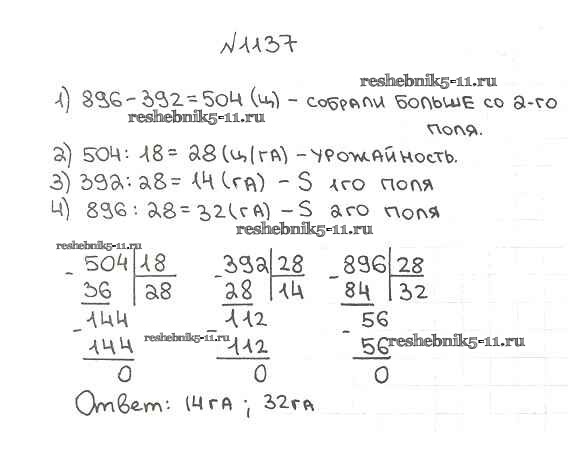 №1137
reshebnik5-11.ru
1) 896-392=504 (ц) - собрали больше со 2-го
reshebnik5-11.ru
поля.
2) 504:18=28 (ц/га) - урожайность.
3) 392:28=14 (га) - S 1го поля
4) 896:28=32 (га) - S 2го поля
reshebnik5-11.ru
reshebnik5-11.ru
- 504 18 - 392 28 - 896 28
36 28 28 14 84 32
- 144 - 112 - 56
reshebnik5-11.ru
144 112 56 reshebnik5-11.ru
0 0 0
Ответ: 14га ; 32га